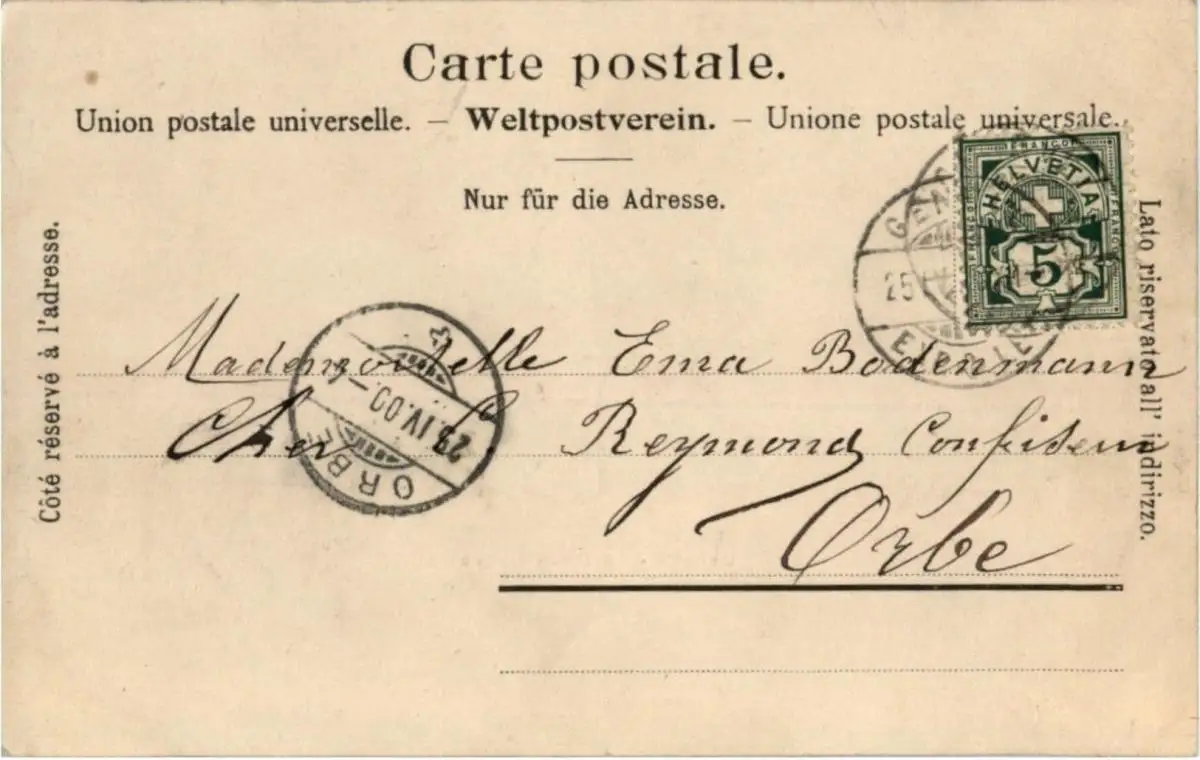 Carte postale.
Union postale universelle. – Weltpostverein. – Unione postale universale.
Nur für die Adresse.
Côté réservé à l'adresse.
Lato riservato all' indirizzo.
FRANCO
HELVETIA
5
25
Mademoiselle Ema Bodenmann
Reymond Confiseur
Orbe
ORBE
IV.00